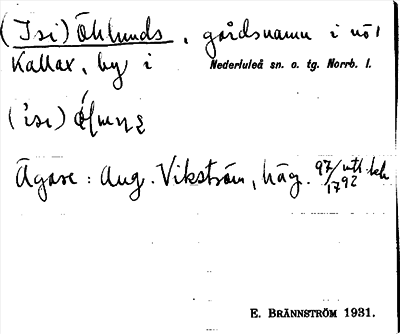 (Isi) Öhlunds, gårdsnamn i nö 1
Kallax, by i Nederluleå sn. o. tg. Norrb. l.
('isi)
Ägare: Aug. Vikström, häg. 97/1792
E. BRÄNNSTRÖM 1931.